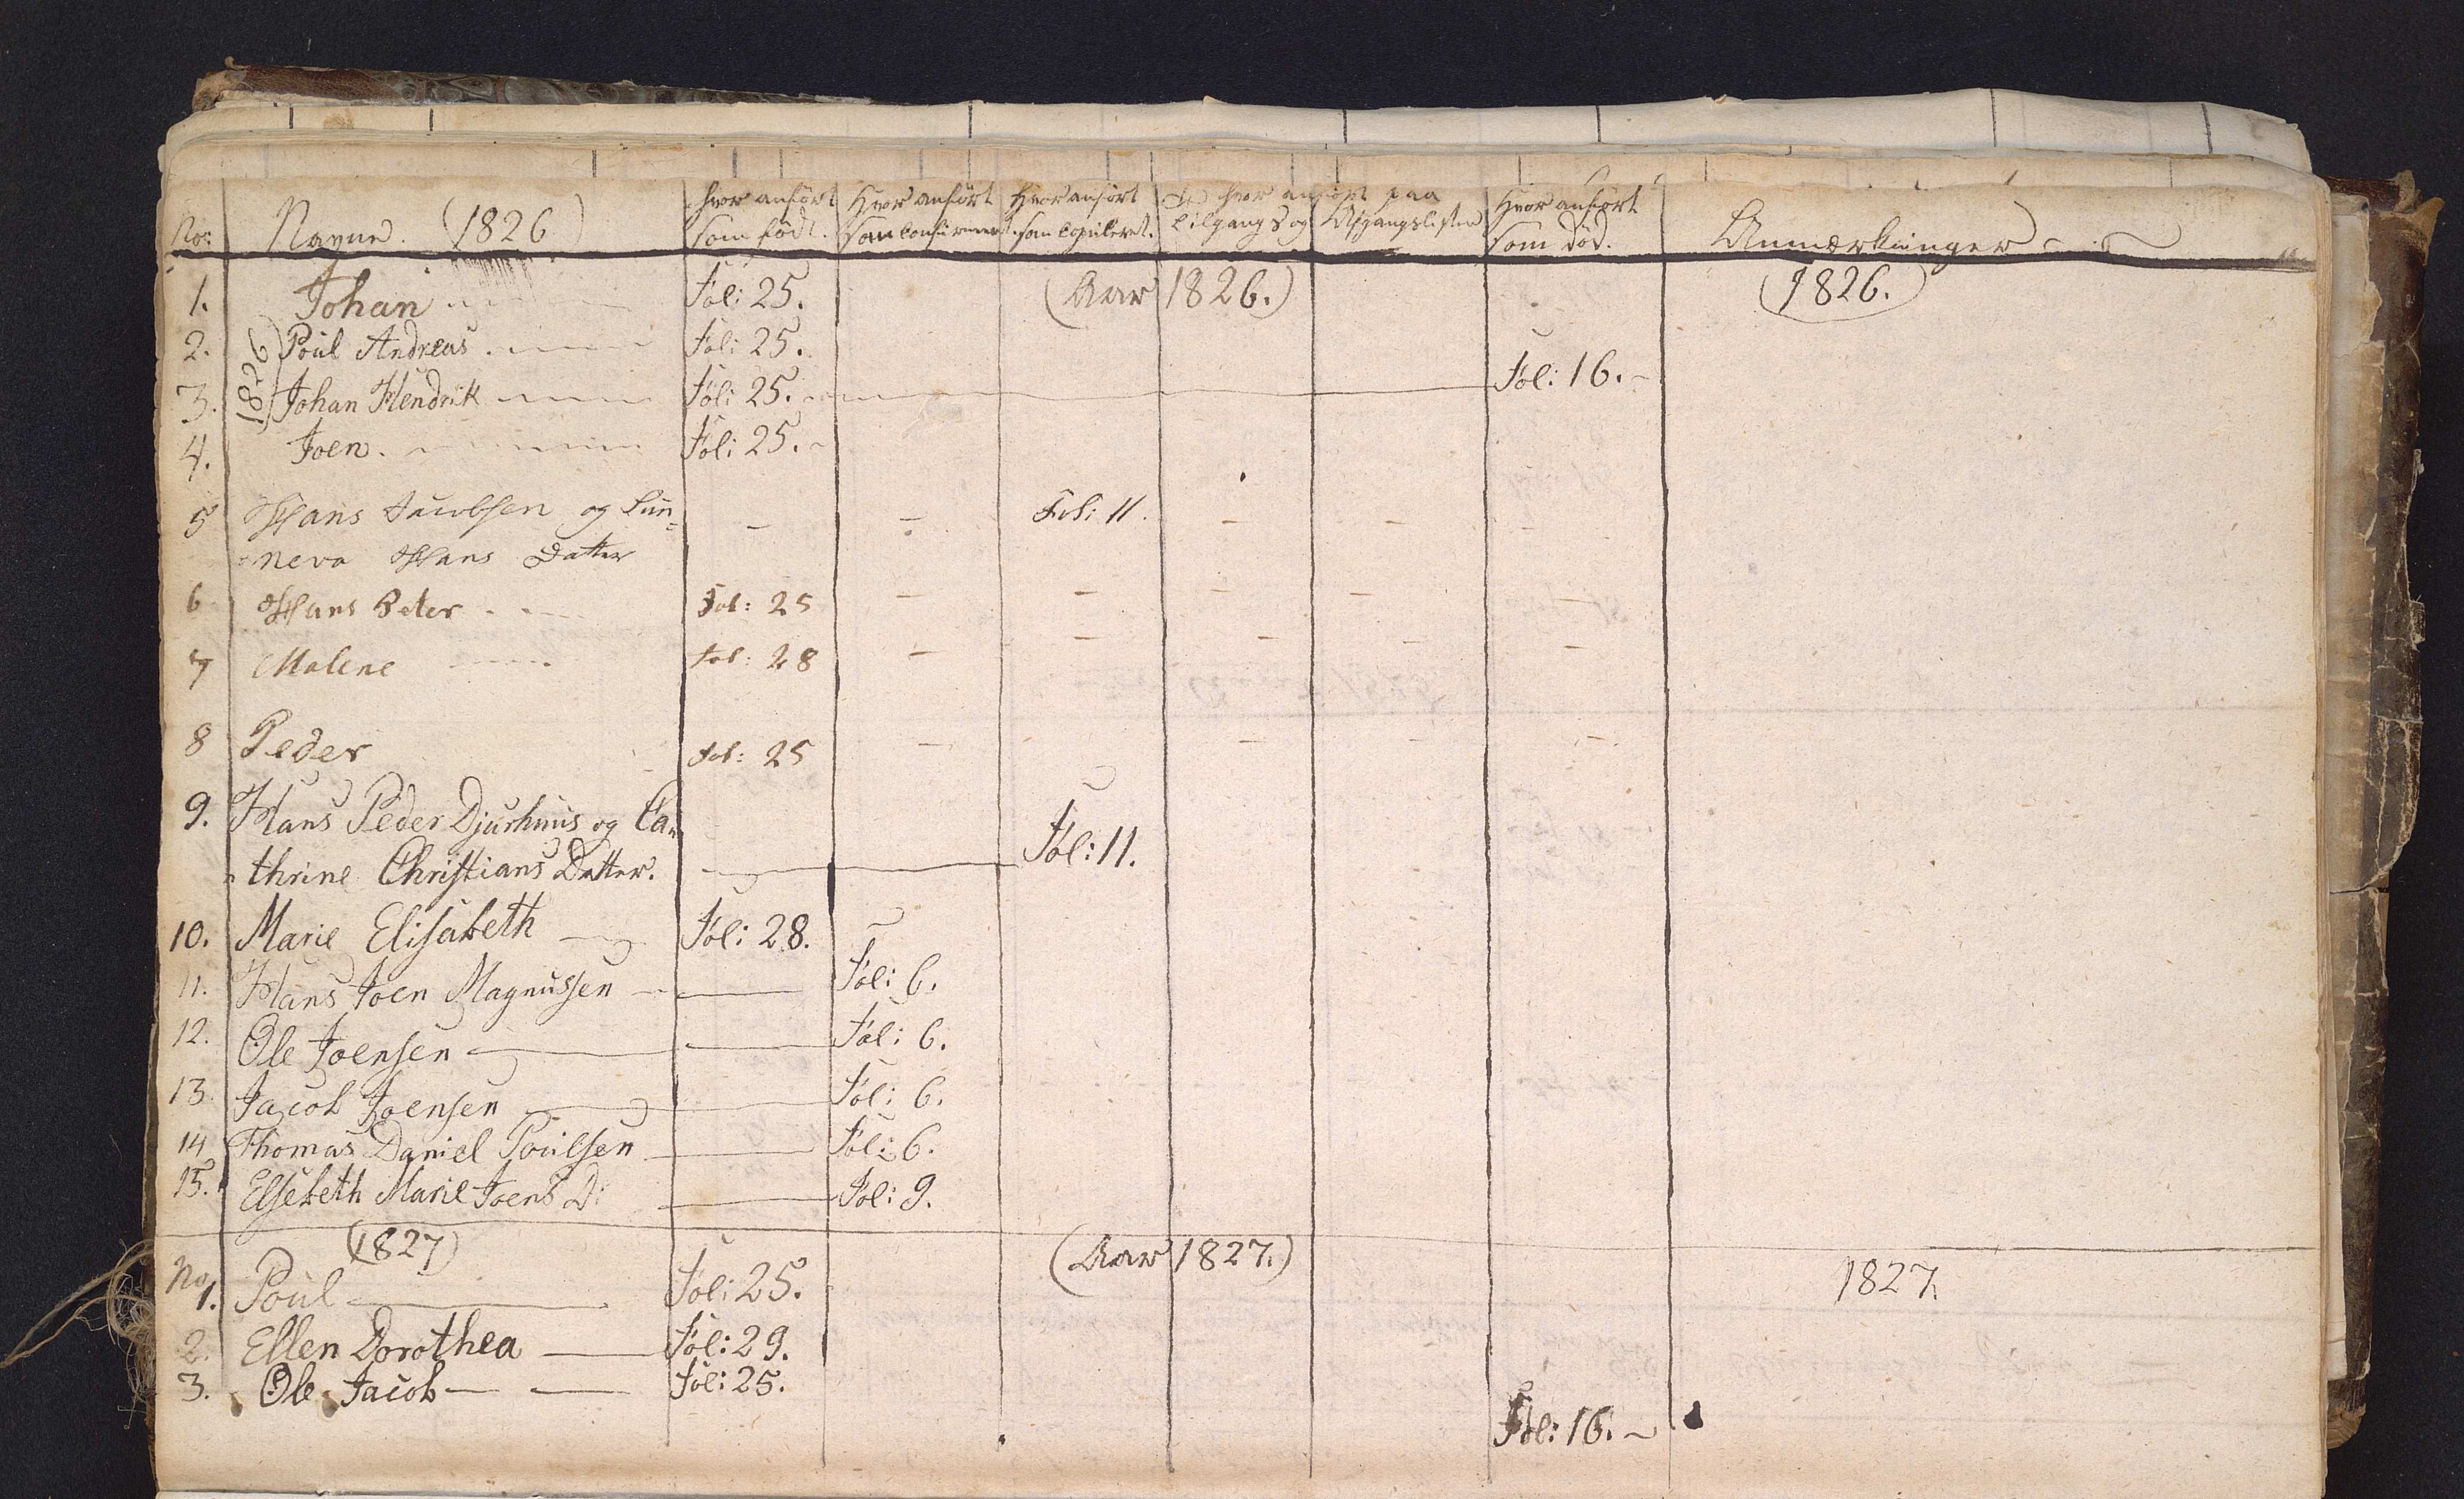 No: Navne. (1826) hvor anført som født. Hvor anført som confirmeret. Hvor anført som copuleret. hvor anført paa Tilgangs og Afgangslisten Hvor anført som død. Anmærkninger
1. Johan Fol: 25. (Aar 1826.) (1826.)
2. (1826) Poul Andreas Fol: 25.
3. Johan Hendrik Fol: 25. Fol: 16.
4. Joen. Fol: 25.
5 Hans Jacobsen og Sun= Fol: 11.
=neva Hans Datter
6 Hans Peter Fol: 25
7 Malene Fol: 28
8 Peder Fol: 25
9. Hans Peder Djurhuus og Ca=
=thrine Christians Datter. Fol: 11.
10. Marie Elisabeth Fol: 28.
11. Hans Joen Magnussen Fol: 6.
12. Ole Joensen Fol: 6.
13. Jacob Joensen Fol: 6.
14 Thomas Daniel Poulsen Fol: 6.
15. Elsebeth Marie Joens D: Fol: 9.
(1827) (Aar 1827.) 1827.
No 1. Poul Fol: 25.
2. Ellen Dorothea Fol: 29.
3. Ole Jacob Fol: 25.
Fol: 16.